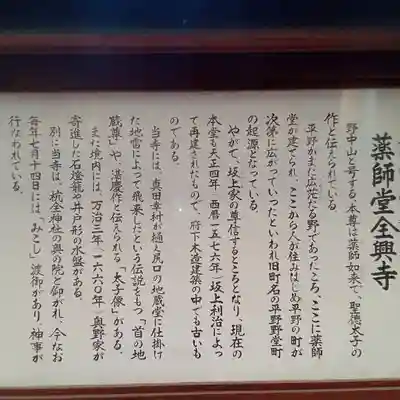 薬師堂全興寺
野中山と号する本尊は薬師如来で、聖徳太子の
作と伝えられている
平野がまた広茫たる野であったころ、ここに薬師
堂が建てられ、ここから人が住みはじめ平野の町が
次第に広がっていったといわれ旧町名の平野野堂町
の起源となっている。
やがて、坂上家の尊信するところとなり、現在の
本堂も天正四年・西暦一五七六年・坂上利治によっ
て再建されたもので、府下木造建築の中でも古いも
のである。
当寺には、真田幸村が樋ノ尻口の地蔵堂に仕掛け
た地雷によって飛来したという伝説をもつ「首の地
蔵尊」や、湛慶作と伝えられる「太子像」がある。
また境内には、万治三年・一六六〇年・奥野家が
寄進した石燈籠や井戸形の水盤がある。
別に当寺は、杭全神社の奥の院と仰がれ、今なお
毎年七月十四日には、「みこし」渡御があり、神事が
行なわれている。